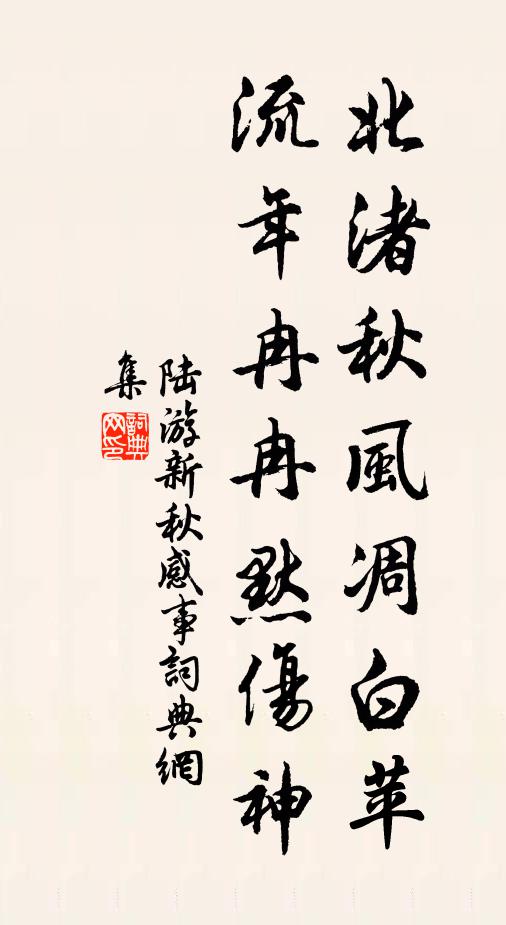 北渚秋風凋白苹
流年冉冉默傷神
陆游新秋感事詞典網
集
詞典
网印